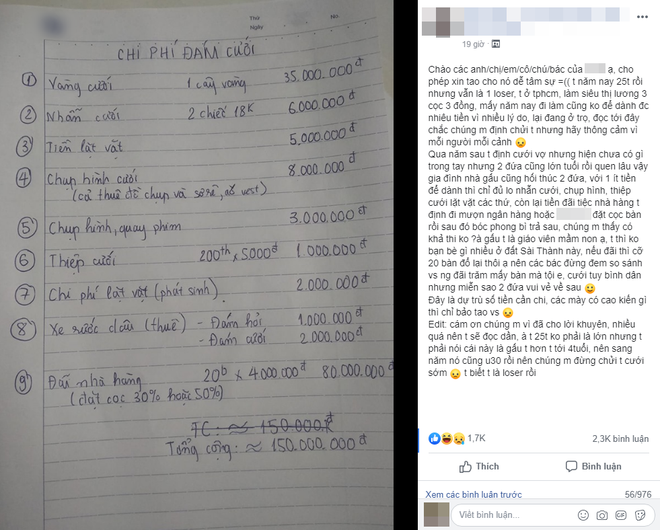 Thứ
Ngày
No
CHI PHÍ ĐÁM CƯỚI
① Vàng cưới 1 cây vàng 35.000.000đ
② Nhẫn cưới 2 chiếc 18K 6.000.000đ
③ Tiền lặt vặt 5.000.000đ
④ Chụp hình cưới 8.000.000đ
(cả thuê đồ chụp và sơrê, áo vest)
⑤ Chụp hình, quay phim 3.000.000đ
⑥ Thiệp cưới 200th x 5000đ 1.000.000đ
⑦ Chi phí lặt vặt (phát sinh) 2.000.000đ
⑧ Xe rước dâu (thuê) - Đám hỏi 1.000.000đ
- Đám cưới 2.000.000đ
⑨ Đãi nhà hàng 20b x 4000000đ 80.000.000đ
(đặt cọc 30% hoặc 50%)
TC: ≈ 150.000Kđ
Tổng cộng: ≈ 150.000.000đ
19 giờ
Chào các anh/chị/em/cô/chú/bác của ạ, cho
phép xin tao cho nó dễ tâm sự =(( t năm nay 25t rồi
nhưng vẫn là 1 loser, t ở tphcm, làm siêu thị lương 3
cọc 3 đồng, mấy năm nay đi làm cũng ko để dành đc
nhiêu tiền vì nhiều lý do, lại đang ở trọ, đọc tới đây
chắc chúng m định chửi t nhưng hãy thông cảm vì
mỗi người mỗi cảnh
Qua năm sau t định cưới vợ nhưng hiện chưa có gì
trong tay nhưng 2 đứa cũng lớn tuổi rồi quen lâu vậy
gia đình nhà gấu cũng hối thúc 2 đứa, với 1 ít tiền
để dành thì chỉ đủ lo nhẫn cưới, chụp hình, thiệp
cưới lặt vặt các thứ, còn lại tiền đãi tiệc nhà hàng t
định đi mượn ngân hàng hoặc đặt cọc bàn
rồi sau đó bóc phong bì trả sau, chúng m thấy có
khả thi ko ?à gấu t là giáo viên mầm non ạ, t thì ko
bạn bè gì nhiều ở đất Sài Thành này, nếu đãi thì cỡ
20 bàn đổ lại thôi ạ nên các bác đừng đem so sánh
vs ng đãi trăm mấy bàn mà tội e, cưới tuy bình dân
nhưng miễn sao 2 đứa vui vẻ về sau
Đây là dự trù số tiền cần chi, các mày có cao kiến gì
thì chỉ bảo tao vs
Edit: cảm ơn chúng m vì đã cho lời khuyên, nhiều
quá nên t sẽ đọc dần, à t 25t ko phải là lớn nhưng t
phải nói cái này là gấu t hơn t tới 4tuổi, nên sang
năm nó cũng u30 rồi nên chúng m đừng chửi t cưới
sớm t biết t là loser rồi
1,7K 2,3K bình luận
Thích Bình luận
Xem các bình luận trước 56/976
Viết bình luận...
GIF